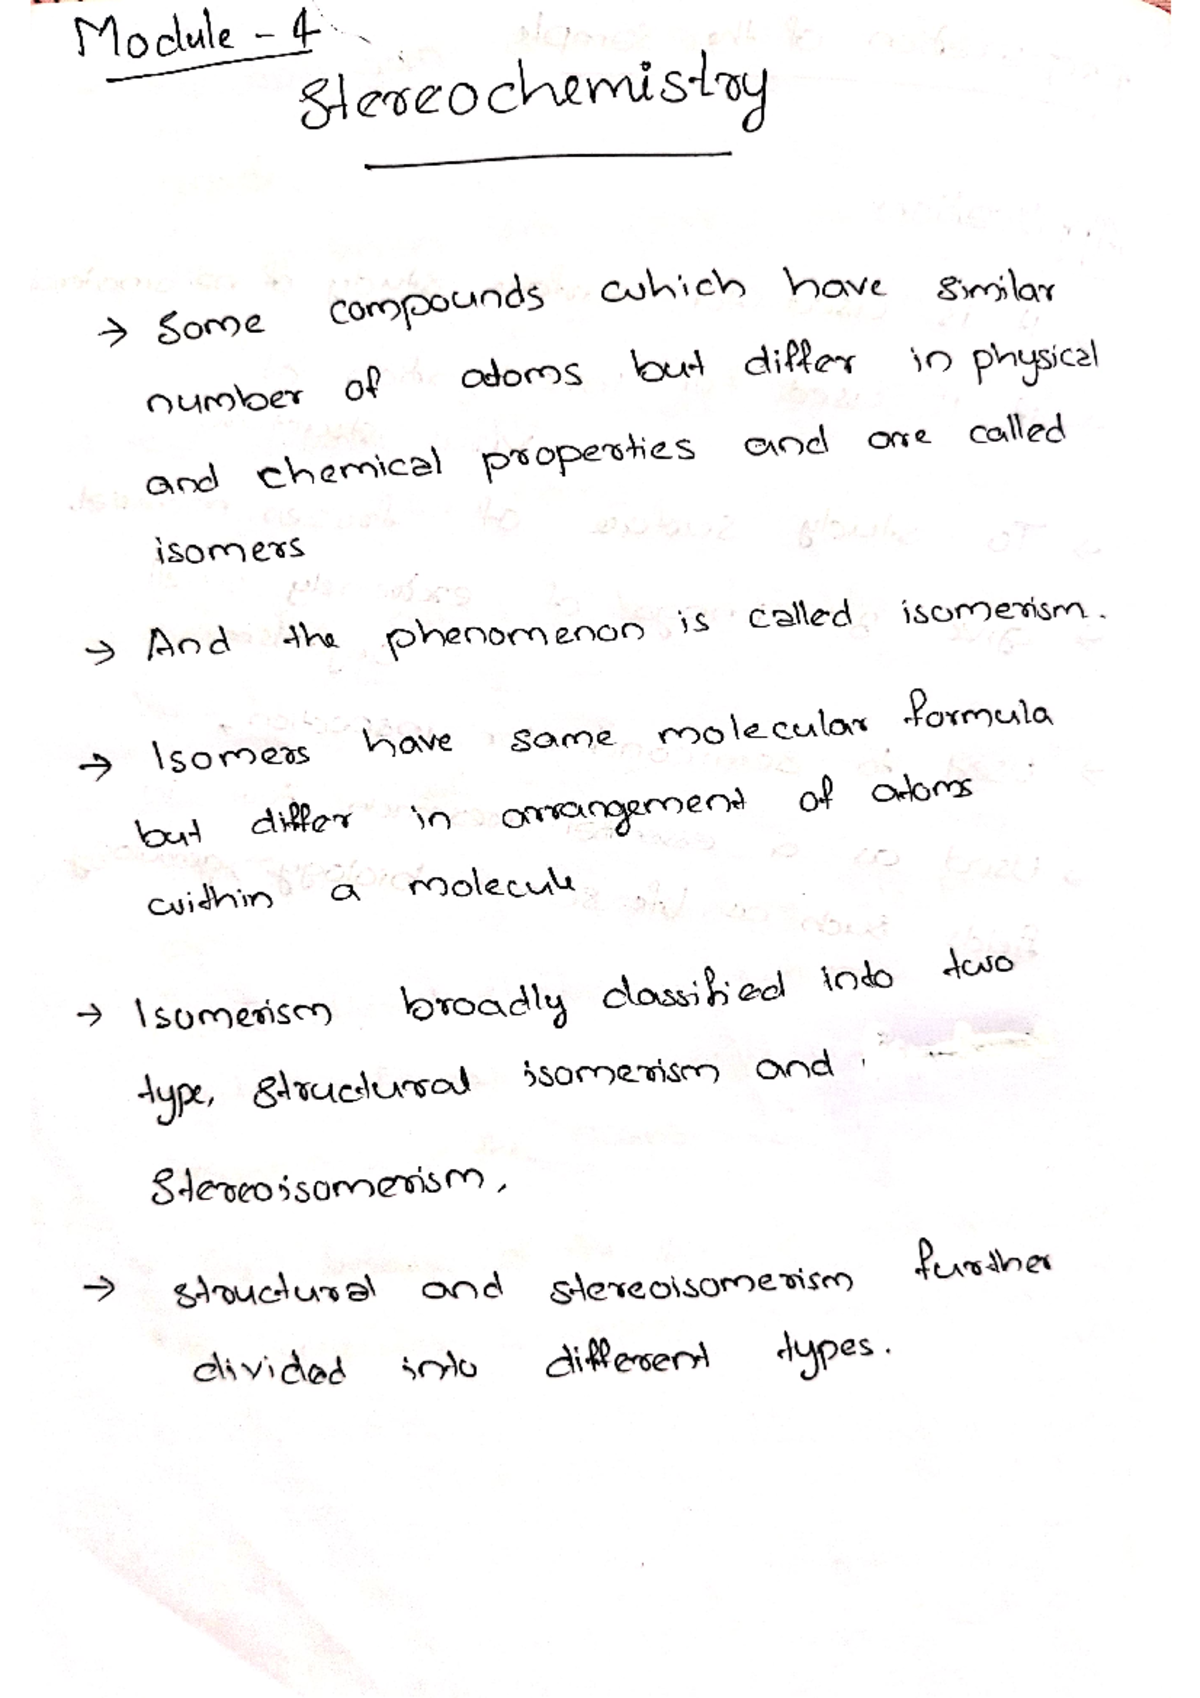 Module - 4
Stereochemistry
→ Some compounds which have similar
number of atoms but differ in physical
and chemical properties and are called
isomers
→ And the phenomenon is called isomerism.
→ Isomers have same molecular formula
but differ in arrangement of atoms
within a molecule
→ Isomerism broadly classified into two
type, structural isomerism and
Stereoisomerism,
→ structural and stereoisomerism further
divided into different types.